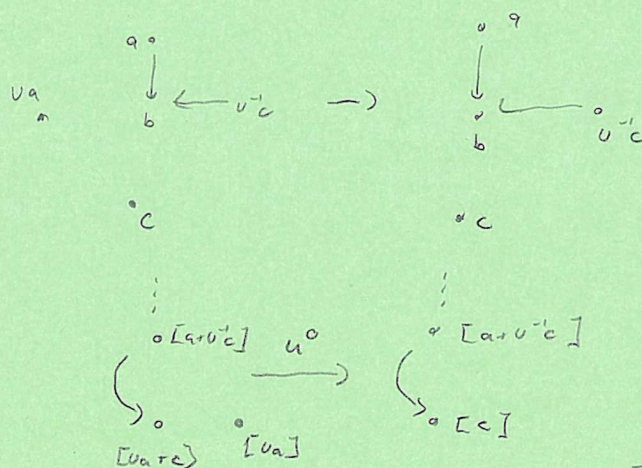 a a
Ua b U⁻¹c → b U⁻¹c
c c
[a+U⁻¹c] u⁰ [a+U⁻¹c]
[Ua+c] [Ua] [c]